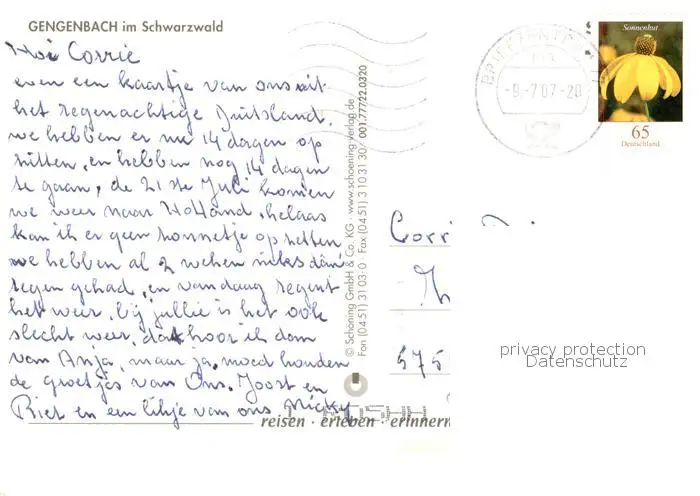 GENGENBACH im Schwarzwald
Hoi Corrie
even een kaartje van ons uit
het regenachtige Duitsland.
we hebben er nu 14 dagen op
zitten, en hebben nog 14 dagen
te gaan, de 21 ste Juli komen
we weer naar Holland, helaas
kan ik er geen zonnetje op zetten
we hebben al 2 weken niks dan
regen gehad, en vandaag regent
het weer, bij jullie is het ook
slecht weer, dat hoor ik dan
van Anja, maar ja, moed houden
de groetjes van Ons. Joost en
Riet en een likje van ons Micky
© Schöning GmbH & Co. KG · www.schoening-verlag.de
Fon (04 51) 31 03-0 Fax (04 51) 3 10 31 30 / 001.777/22.0320
BRIEFZENTR
-9.-7.07-20
Sonnenhut
65
Deutschland
Corri
575
privacy protection
Datenschutz
reisen · erleben · erinnern